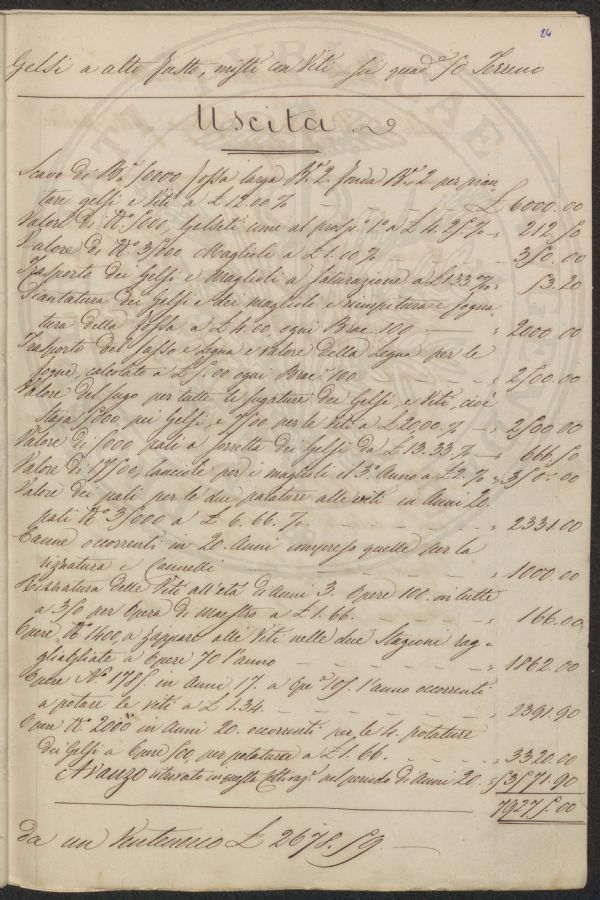 24
Gelsi a alto fusto, misti con Viti su quad.e 50 Terreno
Uscita
Scavo di B.a 50000 fossa larga B.a 2. fonda B.a 2 per pian-
tare gelsi e Viti a £ 12.00 % £ 6000.00
Valore di N.o 5000, Gelsetti come al prosp.o 1.o a £ 4.25 % " 212.50
Valore di N.o 35000 Maglioli a £ 1.00 % 350.00
Trasporto dei Gelsi e Maglioli a £ 1.33 " 53.20
Piantatura dei Gelsi e dei maglioli e riempitura e fogna-
tura della fossa a £ 4.00 ogni Brac. 100 " 2000 00
Trasporto del sasso e legna e valore della legna per le
fogne, calcolato a £ 5.00 ogni Brac. 100 " 2500.00
Valore del sugo per tutte le sugature dei Gelsi, e Viti, cioè
Staja 5000 pei Gelsi, e 7500 per le Viti a £ 2000. % " 2500 00
Valore di 5000 pali a forretta dei Gelsi da £ 13.33 % " 666.50
Valore di 17500, canciole per i maglioli il 3.o Anno a £ 2. % " 350.00
Valore dei pali per le due palature alle viti in Anni 20.
pali N.o 35000 a £ 6.66. % " 2331.00
Canne occorrenti in 20. Anni compreso quelle per la
tiratura e Cannelli " 1000 00
delle Viti all'età di anni 3. Opere 100. in tutte
a 350 per Opera di maestro a £ 1.66. " 166.00
Opere N.o 1400, a zappare alle Viti nelle due Stagioni rag-
gliate a Opere 70 l'anno " 1862.00
Opere N.o 1785. in Anni 17. a Ope.e 105. l'anno occorrenti
a potare le viti a £ 1.34. " 2391.90
Opere N.o 2000 in Anni 20. occorrenti per le 4. potature
dei Gelsi a Opere 500, per potatura a £ 1.66. " 3320.00
Avanzo ritrovato in questa Coltivaz.e nel periodo di Anni 20. " 53571.90
79275.00
da un Ventennio £ 2678.59